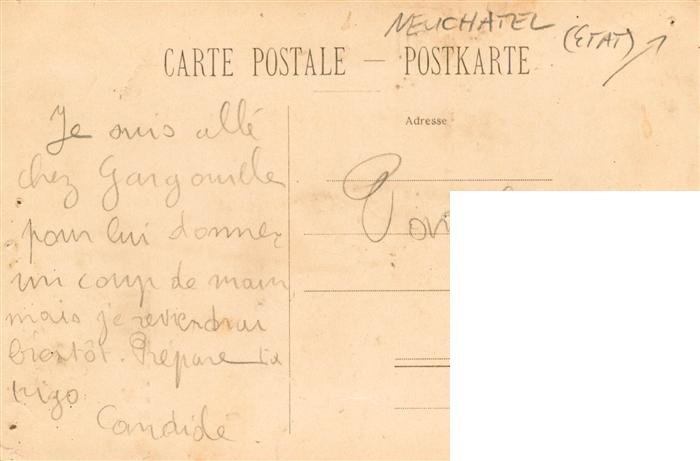 NEUCHATEL
(ETAT)
CARTE POSTALE — POSTKARTE
Adresse
Je suis allé
chez Gargouille
pour lui donner
un coup de main
mais je reviendrai
bientôt. Prépare ta
Candide